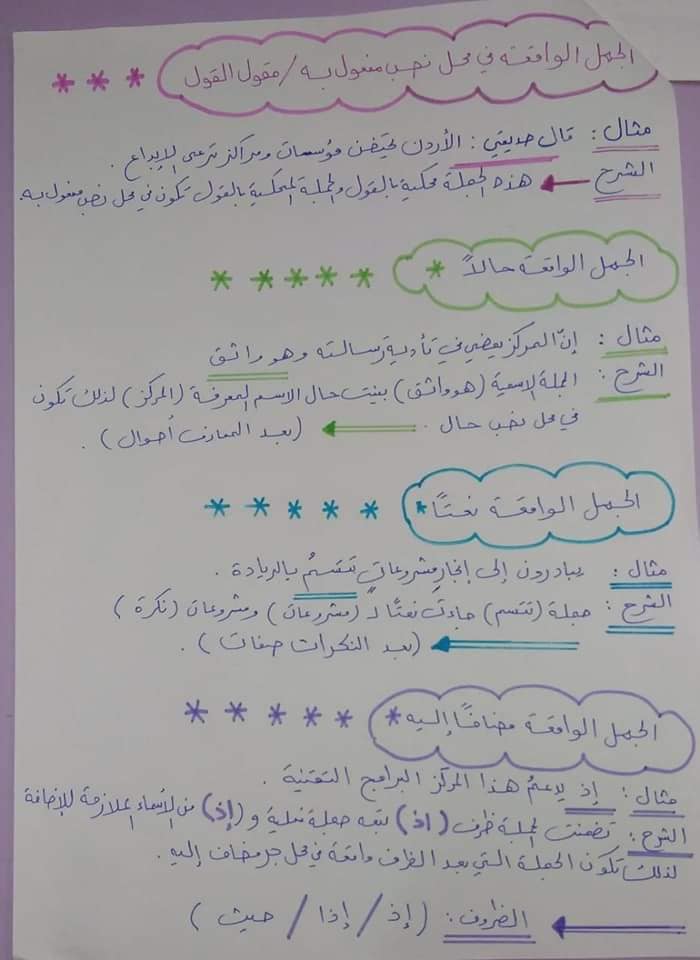 الجمل الواقعة في محل نصب مفعول به / مقول القول
مثال : قال صديقي : الأردن تحتضن مؤسسات ومراكز ترعى الإبداع .
الشرح هذه الجملة محكية بالقول والجملة المحكية بالقول تكون في محل نصب مفعول به.
الجمل الواقعة حالاً
مثال : إنّ المركز يمضي في تأدية رسالته وهو واثق
الشرح : الجملة الاسمية (هو واثق) بينت حال الاسم المعرفة (المركز) لذلك تكون
في محل نصب حال . (بعد المعارف أحوال) .
الجمل الواقعة نعتًا
مثال : يبادرون إلى إنجاز مشروعاتٍ تتسمُ بالريادة .
الشرح : جملة (تتسم) جاءت نعتًا لـ (مشروعات) ومشروعات (نكرة)
(بعد النكرات صفات) .
الجمل الواقعة مضافًا إليه
مثال : إذ يدعمُ هذا المركز البرامج التقنية .
الشرح : تضمنت الجملة ظرف (إذ) تبعه جملة فعلية و (إذ) من الأسماء الملازمة للإضافة
لذلك تكون الجملة التي بعد الظرف واقعة في محل جر مضاف إليه .
الظروف : (إذ / إذا / حيث)